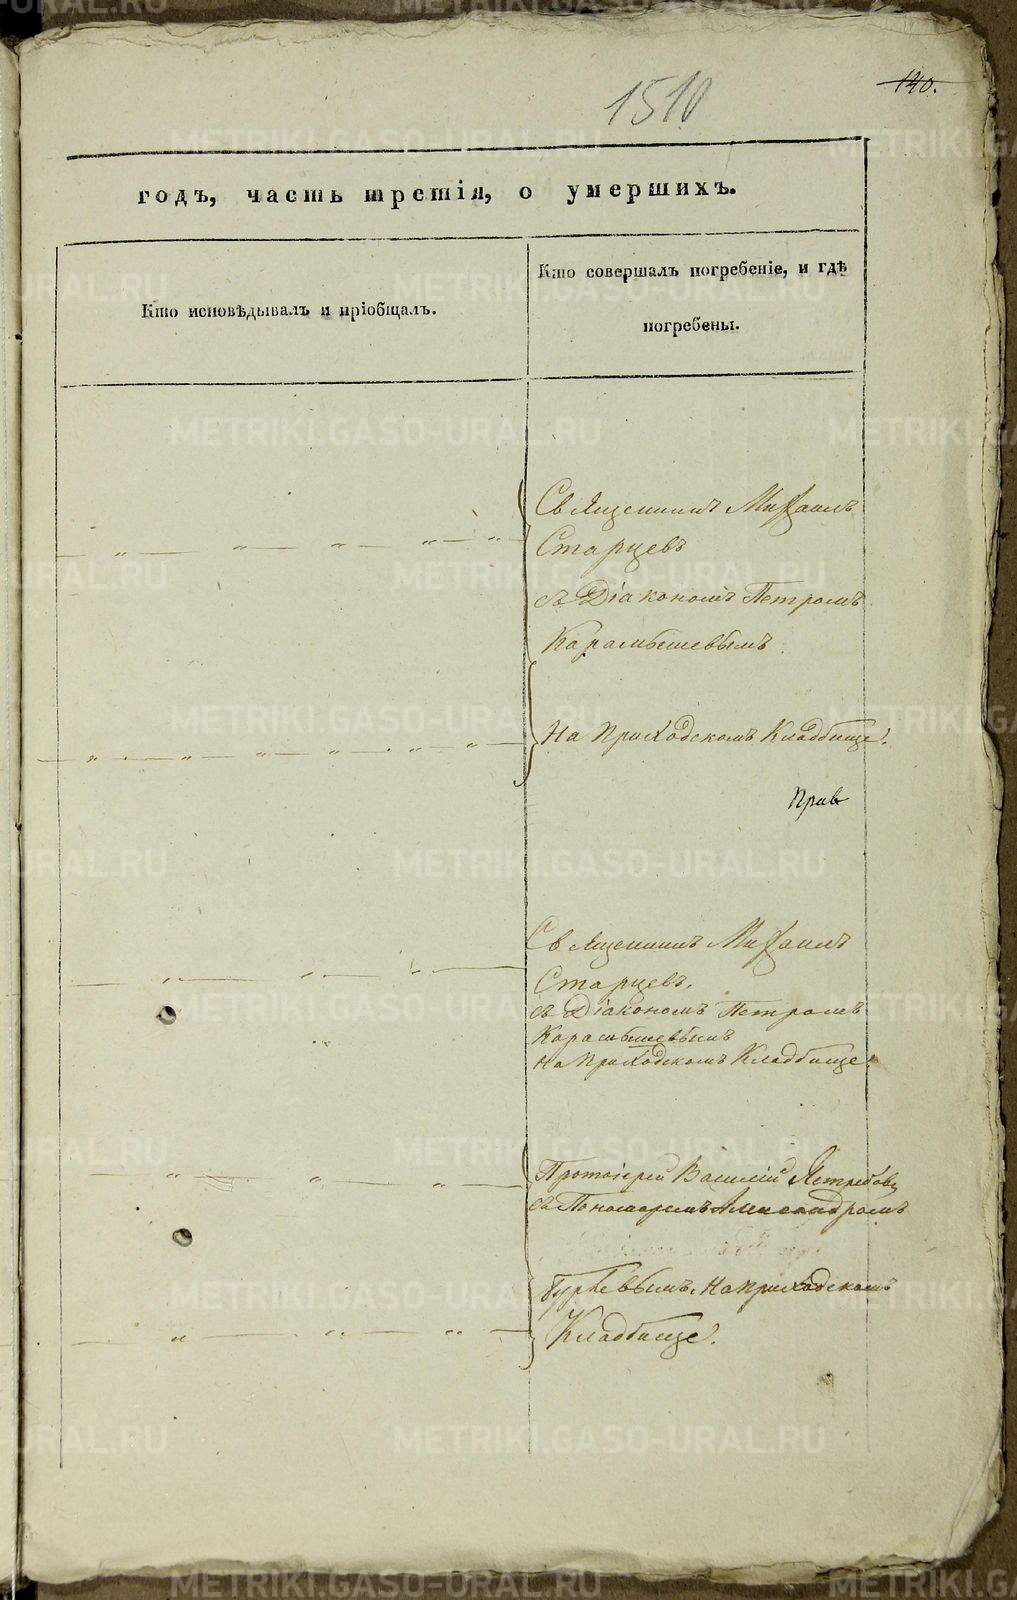 140.
1510
годъ, часть третія, о умершихъ.
Кто исповѣдывалъ и пріобщалъ.
Кто совершалъ погребеніе, и гдѣ
погребены.
Священникъ Михаилъ
Старцевъ
съ Діакономъ Петромъ
Карамышевымъ
На Приходскомъ Кладбище.
Прив
Священникъ Михаилъ
Старцевъ,
съ Діакономъ Петромъ
Карамышевымъ
на Приходскомъ Кладбище.
Протоіерей Василій Ястребовъ
съ Пономаремъ Александромъ
Гурьевымъ. На приходскомъ
Кладбище.
METRIKI.GASO-URAL.RU